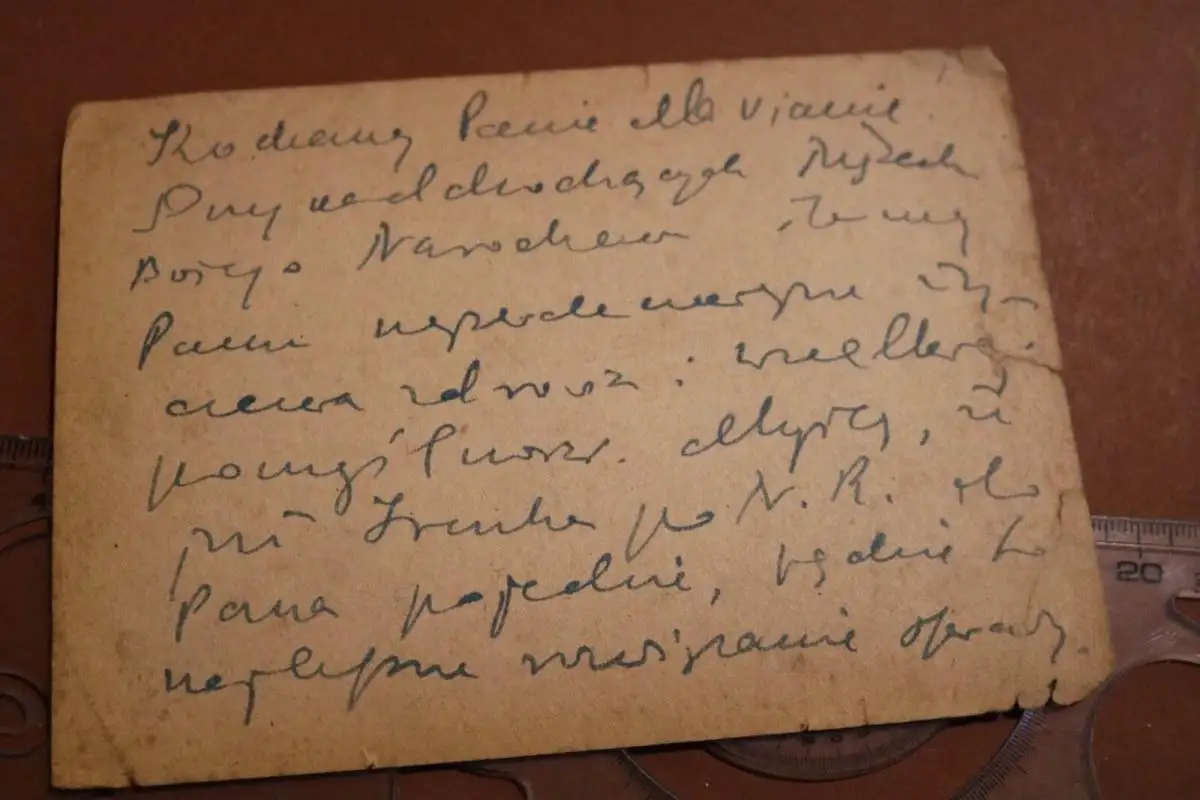 Kochany Panie Marianie!
Przy nadchodzących Świętach
Bożego Narodzenia
Panu najserdeczniejsze ży-
czenia zdrowia i wszelkiej
pomyślności. Myślę, że
jak Irenka po N. R. do
Pana pojedzie, będzie to
najlepsze rozwiązanie sprawy.
20